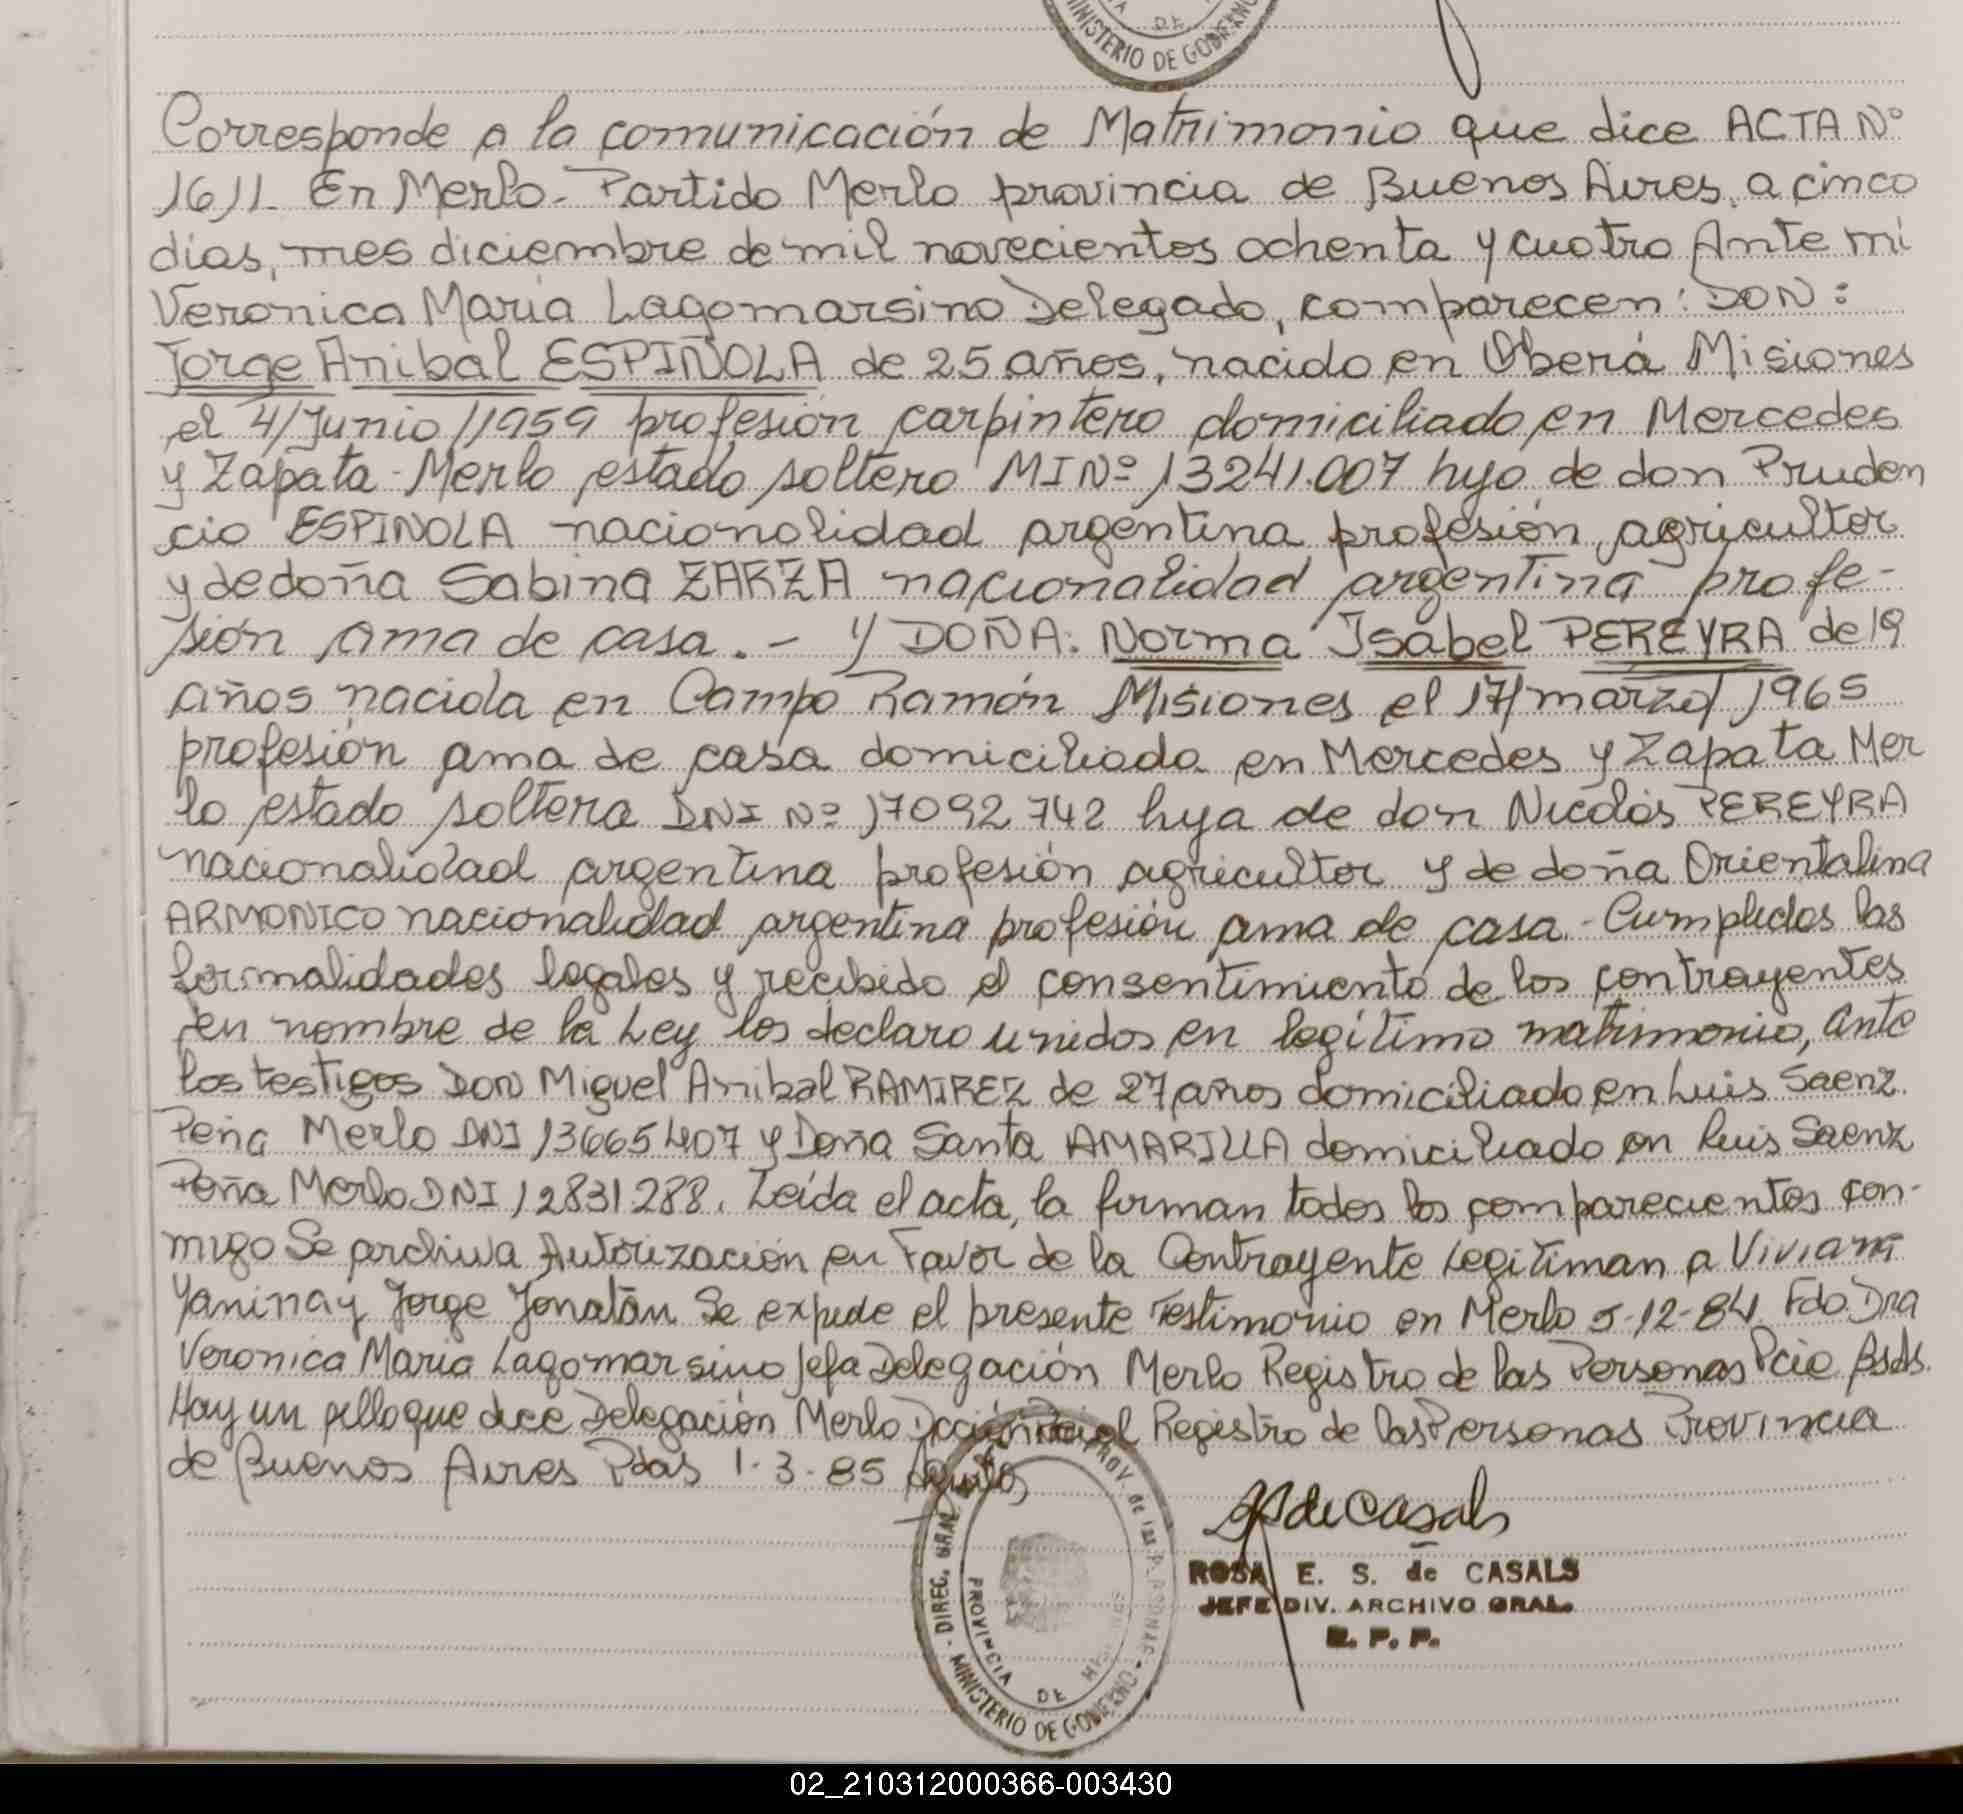 DE
MINISTERIO DE GOBIERNO
Corresponde a la comunicación de Matrimonio que dice ACTA Nº
1611. En Merlo - Partido Merlo provincia de Buenos Aires, a cinco
dias, mes diciembre de mil novecientos ochenta y cuatro Ante mi
Veronica Maria Lagomarsino Delegado, comparecen: DON:
Jorge Anibal ESPIÑOLA de 25 años, nacido en Oberá Misiones
el 4/Junio/1959 profesión carpintero domiciliado en Mercedes
y Zapata - Merlo estado soltero MI Nº 13241.007 hijo de don Pruden
cio ESPINOLA nacionalidad argentina profesión agricultor
y de doña Sabina ZARZA nacionalidad argentina profe-
sión ama de casa. - Y DOÑA: Norma Isabel PEREYRA de 19
años nacida en Campo Ramón Misiones el 17/marzo/1965
profesión ama de casa domiciliada en Mercedes y Zapata Mer
lo estado soltera DNI Nº 17092742 hija de don Nicolás PEREYRA
nacionalidad argentina profesión agricultor y de doña Orientalina
ARMONICO nacionalidad argentina profesión ama de casa - Cumplidos las
formalidades legales y recibido el consentimiento de los contrayentes
en nombre de la Ley los declaro unidos en legítimo matrimonio, ante
los testigos DON Miguel Anibal RAMIREZ de 27 años domiciliado en Luis Saenz
Peña Merlo DNI 13665407 y Doña Santa AMARILLA domiciliado en Luis Saenz
Peña Merlo DNI 12831288. Leída el acta, la firman todos los comparecientes con-
migo Se archiva Autorización en Favor de la Contrayente Legitiman a Viviana
Yanina y Jorge Jonatán Se expide el presente Testimonio en Merlo 5-12-84 Fdo. Dra
Veronica Maria Lagomarsino Jefa Delegación Merlo Registro de las Personas Pcie Bs As.
Hay un sello que dice Delegación Merlo Dcción Pcial Registro de las Personas Provincia
de Buenos Aires Pdas 1-3-85
de Casals
ROSA E. S. de CASALS
JEFE DIV. ARCHIVO GRAL.
R. P. P.
DIREC. GRAL. PROV. de las PERSONAS
PROVINCIA DE MISIONES
MINISTERIO DE GOBIERNO
02_210312000366-003430